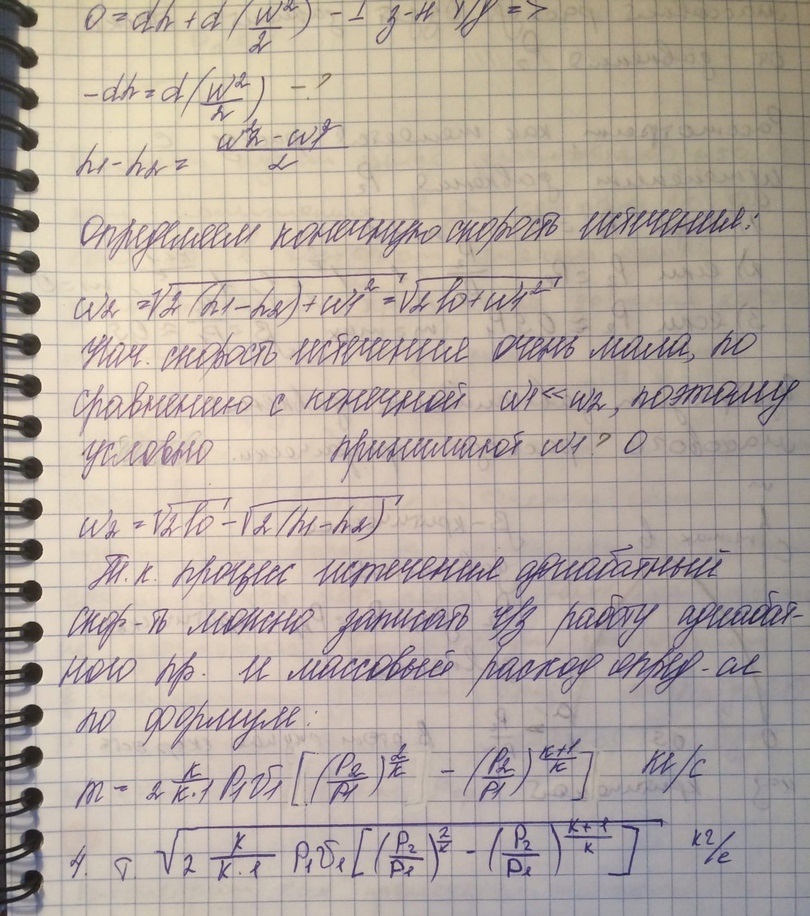 0 = dh + d (w²/2) - 1 з-н т/д =>
-dh = d (w²/2) - ?
h1 - h2 = (w²2 - w1²)/2
Определяем конечную скорость истечения:
w2 = √(2(h1-h2)+w1²) = √(2l0+w1²)
Нач. скорость истечения очень мала, по
сравнению с конечной w1 << w2, поэтому
условно принимают w1 ? 0
w2 = √(2l0) - √(2(h1-h2))
Т.к. процесс истечения адиабатный
скор-ть можно записать ч/з работу адиабат-
ного пр. и массовый расход опред-ся
по формуле:
m = 2 K/(K·1) P1 v1 [(P2/P1)^(2/K) - (P2/P1)^((K+1)/K)] кг/с
4. т. √(2 K/(K·1) P1 v1 [(P2/P1)^(2/K) - (P2/P1)^((K+1)/K)]) кг/с